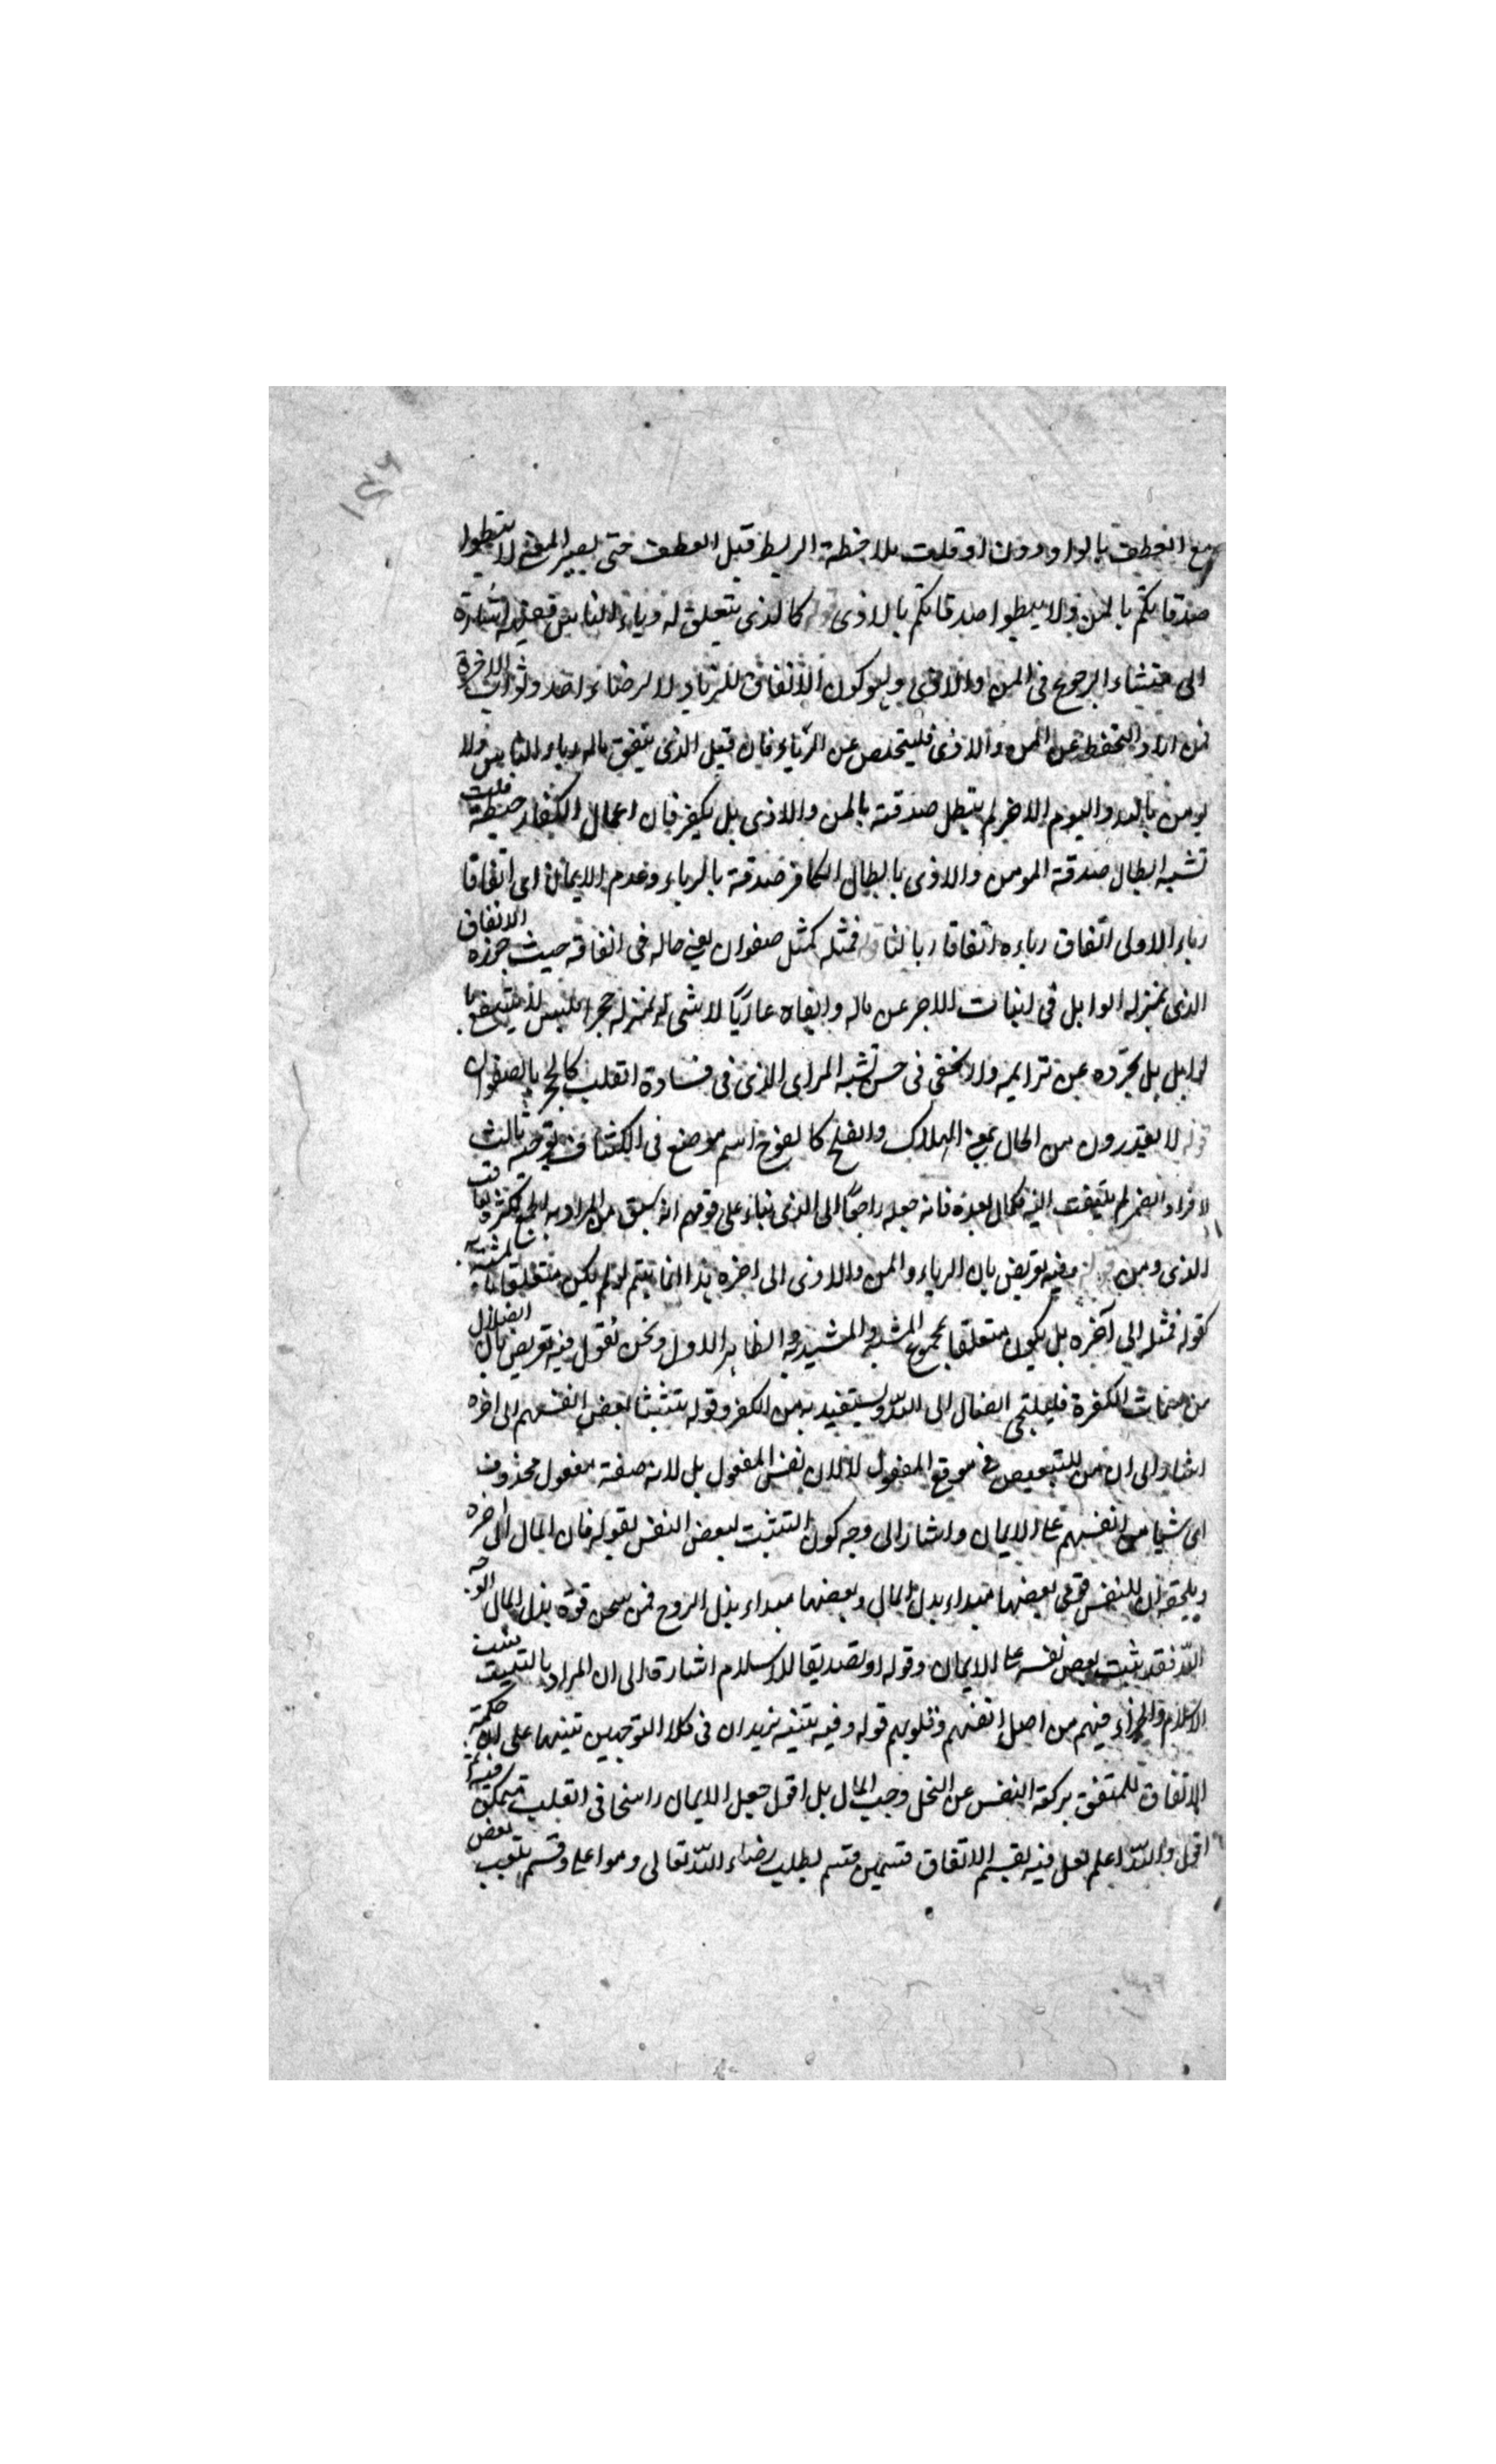 مع العطف بالواو دون او قلت بملاحظة الربط قبل العطف حتى يصير المعنى لا تبطلوا
صدقاتكم بالمن ولا تبطلوا صدقاتكم بالاذى كالذى يتعلق له رياء الناس فعليه اشارة
الى منشاء الرجوع فى المن والاذى وهو كون الانفاق للرياء لا لرضاء الله وثواب الاخرة
فمن اراد التحفظ عن المن والاذى فليتخلص عن الرياء فان قيل الذى ينفق ماله رياء الناس ولا
يومن بالله واليوم الاخر لم يبطل صدقته بالمن والاذى بل بكفر فان اعمال الكفار حبطة قلت
تشبه ابطال صدقة المومن والاذى بابطال الكافر صدقة بالرياء وعدم الايمان اى انفاقا
رياء الاولى انفاق رياءه انفاقا ربا لنا قوله فمثله كمثل صفوان يعنى حاله فى انفاقه حيث الانفاق
الذى بمنزله الوابل فى انبات الاجر عن ماله وابقاه عاريا لا شى له بمنزله حجر املس لا ينتفع
لوابل بل يجرده عن ترابه ولا يخفى فى حسن تشبه المراى الذى فى قساوة القلب كالحجر بالصفوان
قوله لا يقدرون من الحال بمعنى الهلاك والفلج كالفوج اسم موضع فى الكشاف توجيه ثالث
لافراد الضمير لم يلتفت اليه لكمال بعده فانه جعله راجعا الى الذى بناء على قولهم
الذى ومن قوله وفيه تعريض بان الرياء والمن والاذى الى اخره هذا انما يتم لو لم يكن متعلقا
كقوله فمثله الى آخره بل يكون متعلقا بمجموع المشبه والمشبه به والظاهر الاول ونحن نقول فيه تعريض بان الضلال
من صفات الكفرة فليلتجى الضال الى الله ويستعيذ به من الكفر وقوله تثبيتا بعض انفسهم الى اخره
اشار الى ان من للتبعيض فى موقع المفعول لا لان نفس المفعول بل لانه صفة مفعول محذوف
اى شيا من انفسهم على الايمان واشار الى وجه كون التثبت لبعض النفس بقوله فان المال الى اخره
ان للنفس قوى بعضها مبداء بذل المال وبعضها مبداء بذل الروح فمن سخر قوة بذل المال لوجه
الله فقد ثبت بعض نفسه على الايمان وقوله او تصديقا للاسلام اشارة الى ان المراد بالتثبيت
الاسلام والجزاء فيهم من اصل انفسهم وقلوبهم قوله وفيه تنبيه يريد ان فى كلا التوجيهين تنبيها على ان حكمة
الانفاق للمنفق بركة النفس عن البخل وحب المال بل اقول جعل الايمان راسخا فى القلب
اقول والله اعلم لعل فيه تقسيم الانفاق قسمين قسم لطلب رضاء الله تعالى وهو اعلى وقسم